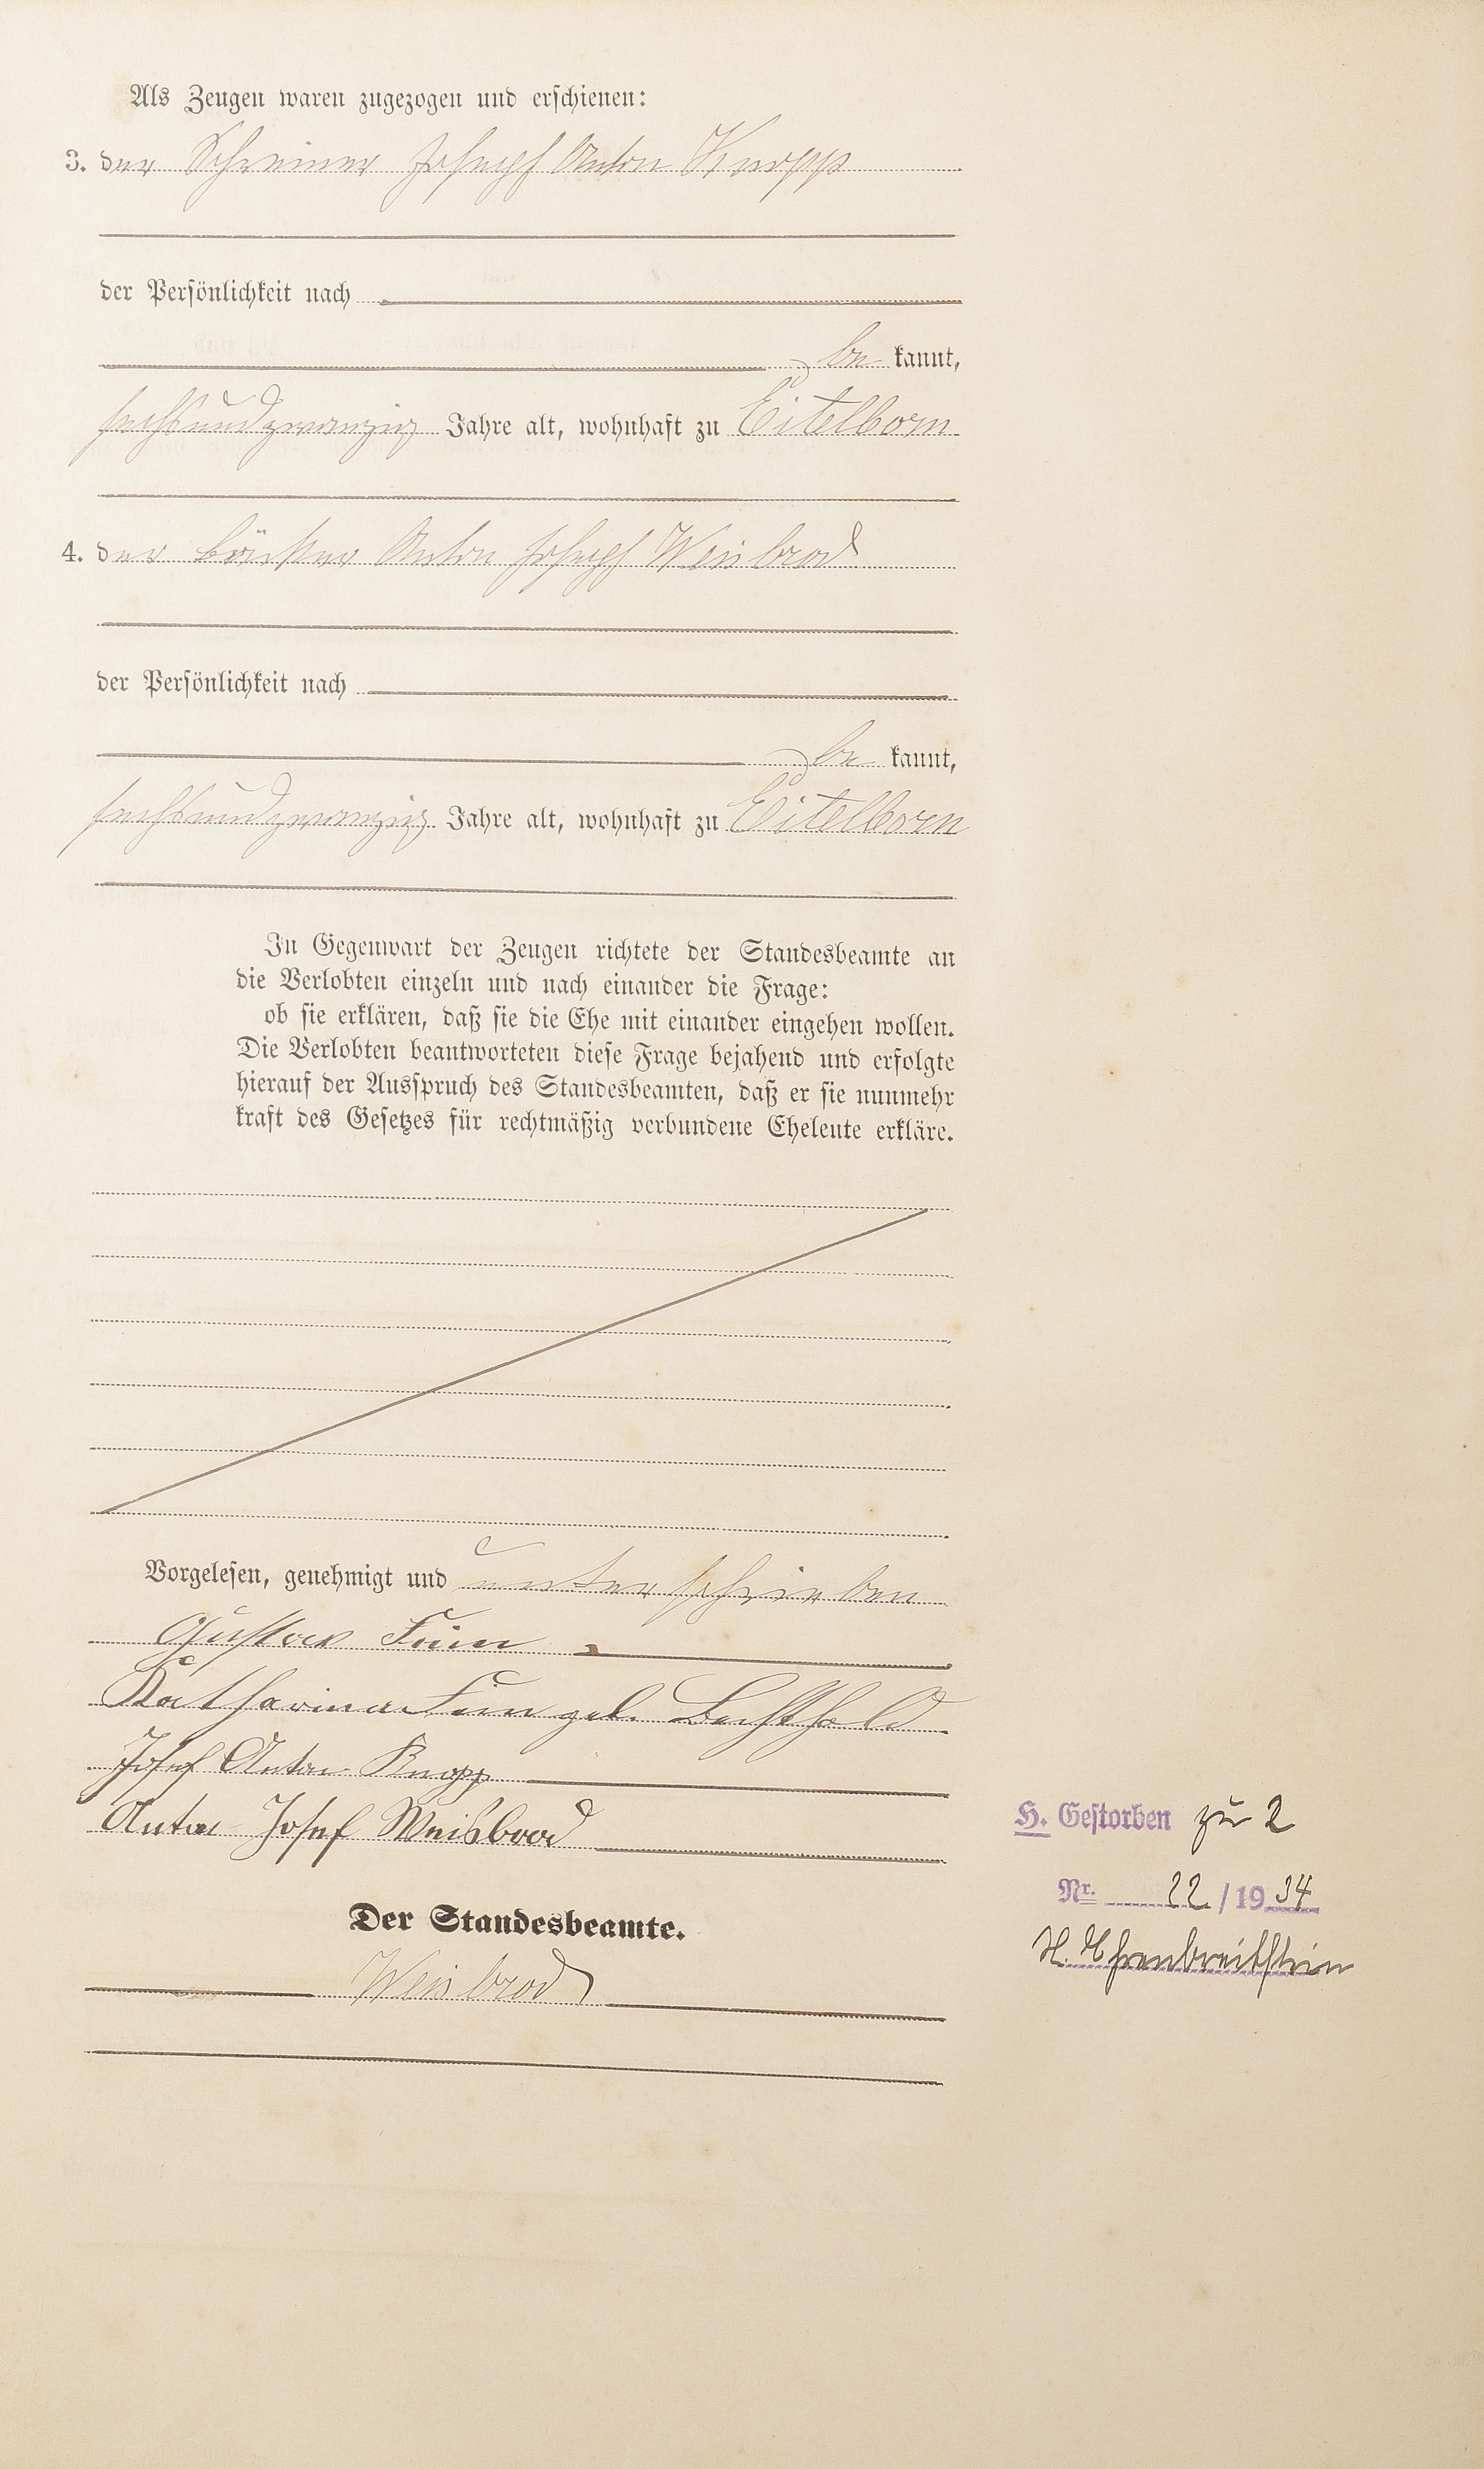 Als Zeugen waren zugezogen und erschienen:
3. der Schreiner Joseph Anton Knopp
der Persönlichkeit nach
be kannt,
sechsundzwanzig Jahre alt, wohnhaft zu Eitelborn
4. der Bäcker Anton Joseph Weisbrod
der Persönlichkeit nach
be kannt,
sechsundzwanzig Jahre alt, wohnhaft zu Eitelborn
In Gegenwart der Zeugen richtete der Standesbeamte an
die Verlobten einzeln und nach einander die Frage:
ob sie erklären, daß sie die Ehe mit einander eingehen wollen.
Die Verlobten beantworteten diese Frage bejahend und erfolgte
hierauf der Ausspruch des Standesbeamten, daß er sie nunmehr
kraft des Gesetzes für rechtmäßig verbundene Eheleute erkläre.
Vorgelesen, genehmigt und unterschrieben
Gustav
Katharina geb. Bechthold
Josef Anton Knopp
Anton Josef Weisbrod
Der Standesbeamte.
Weisbrod
H. Gestorben zu 2
Nr. 22 / 19 34
H. Ehrenbreitstein